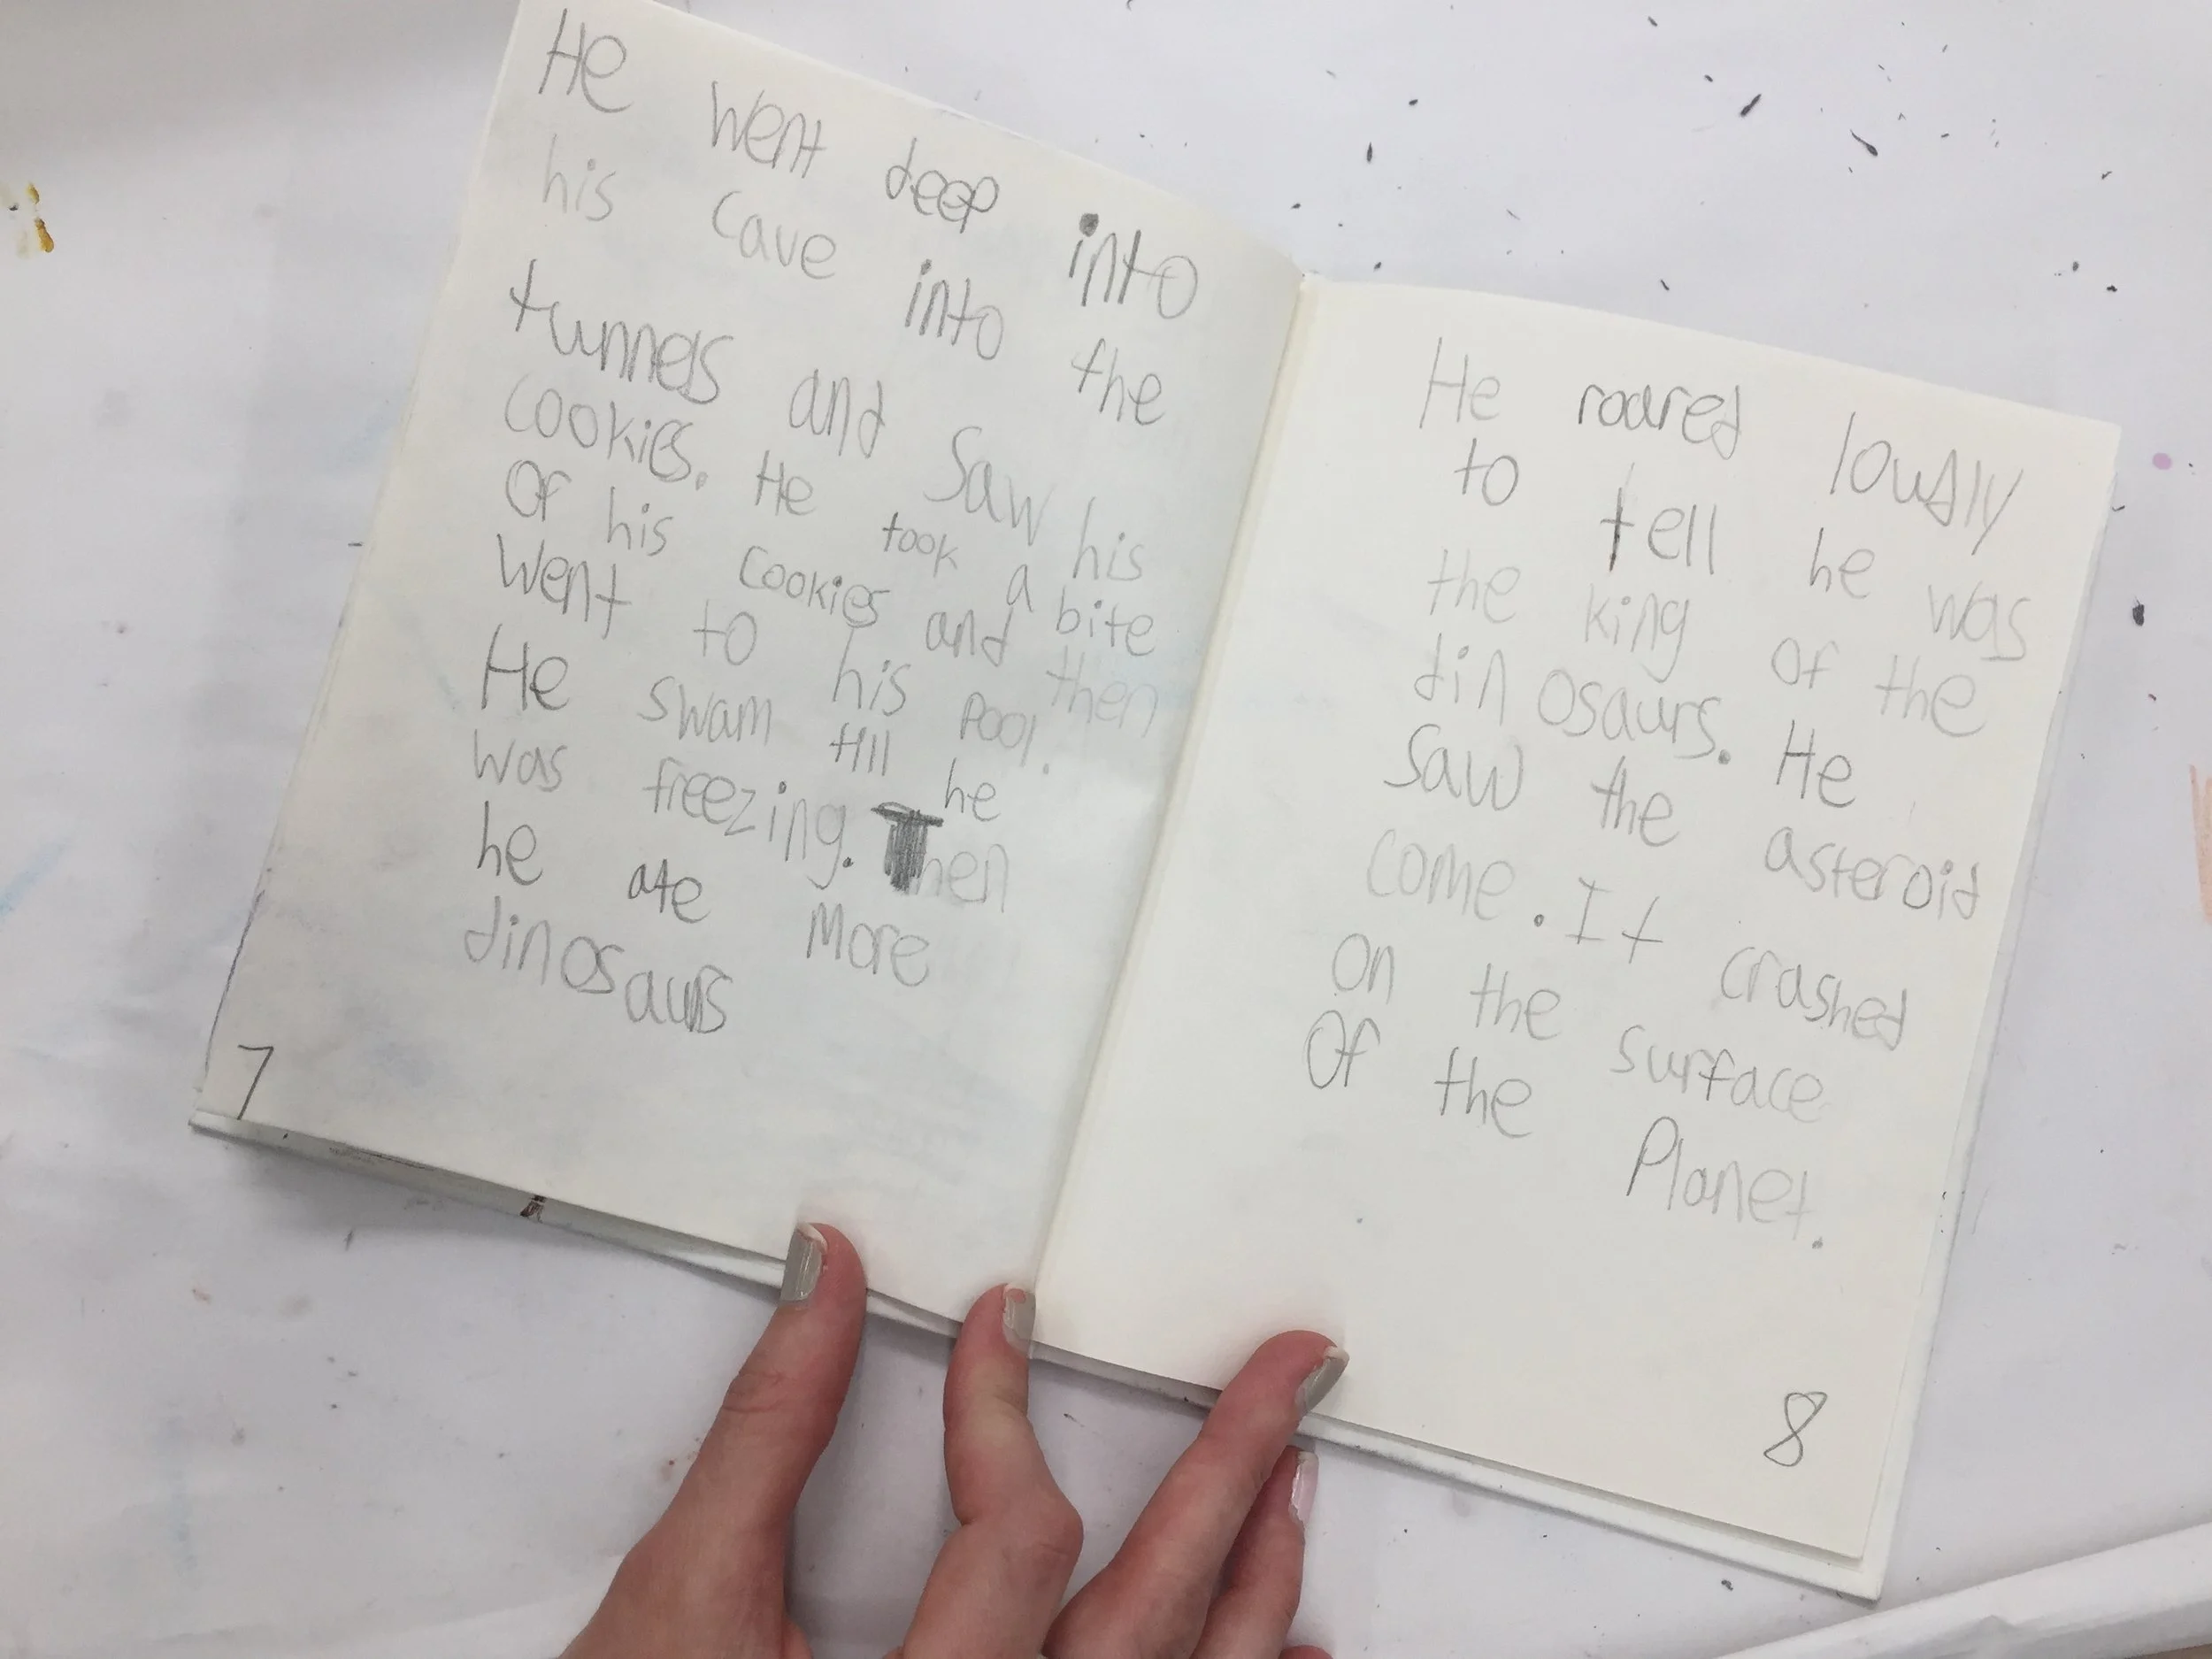 He went deep into
his cave into the
tunnels and saw his
cookies. He took a bite
Of his cookies and then
went to his pool.
He swam till he
was freezing. Then
he ate more
dinosaurs
7
He roared loudly
to tell he was
the king of the
dinosaurs. He
saw the asteroid
come. It crashed
on the surface
Of the Planet.
8